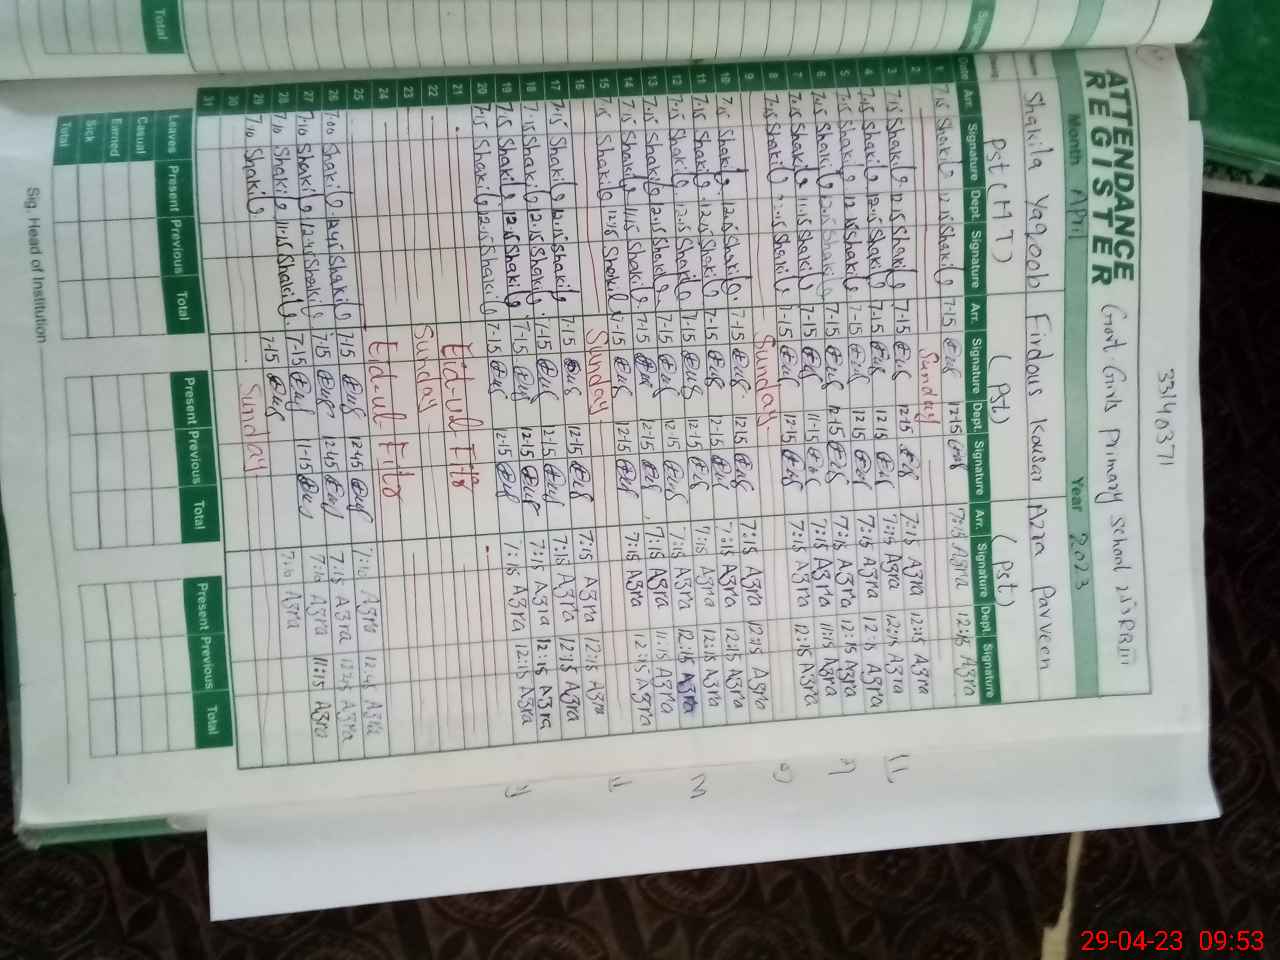 33140371
ATTENDANCE REGISTER
Govt Girls Primary School
Month April Year 2023
Shakila Yaqoob Firdous Kousar Azra Parveen
Pst (HT) (Pst) (Pst)
Date Arr. Signature Dept. Signature Arr. Signature Dept. Signature Arr. Signature Dept. Signature
1 7.15 Shakila 12.15 Shakila 7-15 12-15 7:15 Azra 12:15 Azra
2 Sunday
3 7.15 Shakila 12.15 Shakila 7-15 12-15 7:15 Azra 12:15 Azra
4 7.15 Shakila 12.15 Shakila 7-15 12-15 7:15 Azra 12:15 Azra
5 7.15 Shakila 12.15 Shakila 7-15 12-15 7:15 Azra 12:15 Azra
6 7.15 Shakila 12.15 Shakila 7-15 12-15 7:15 Azra 12:15 Azra
7 7.15 Shakila 11.15 Shakila 7-15 11-15 7:15 Azra 11:15 Azra
8 7.15 Shakila 12.15 Shakila 7-15 12-15 7:15 Azra 12:15 Azra
9 Sunday
10 7.15 Shakila 12.15 Shakila 7-15 12-15 7:15 Azra 12:15 Azra
11 7.15 Shakila 12.15 Shakila 7-15 12-15 7:15 Azra 12:15 Azra
12 7.15 Shakila 12.15 Shakila 7-15 12-15 7:15 Azra 12:15 Azra
13 7.15 Shakila 12.15 Shakila 7-15 12-15 7:15 Azra 12:15 Azra
14 7.15 Shakila 11.15 Shakila 7-15 12-15 7:15 Azra 11:15 Azra
15 7.15 Shakila 12.15 Shakila 7-15 12-15 7:15 Azra 12:15 Azra
16 Sunday
17 7.15 Shakila 12.15 Shakila 7-15 12-15 7:15 Azra 12:15 Azra
18 7.15 Shakila 12.15 Shakila 7-15 12-15 7:15 Azra 12:15 Azra
19 7.15 Shakila 12.15 Shakila 7-15 12-15 7:15 Azra 12:15 Azra
20 7.15 Shakila 12.15 Shakila 7-15 12-15 7:15 Azra 12:15 Azra
21 Eid-ul-Fitr
22
23 Sunday
24 Eid-ul-Fitr
25
26 7.00 Shakila 12.45 Shakila 7-15 12-45 7:10 Azra 12:45 Azra
27 7.10 Shakila 12.45 Shakila 7.15 12-45 7:15 Azra 12:45 Azra
28 7.10 Shakila 11.15 Shakila 7-15 11-15 7:10 Azra 11:15 Azra
29 7.10 Shakila 7.15 7:10 Azra
30 Sunday
31
Leaves Present Previous Total Present Previous Total Present Previous Total
Casual
Earned
Sick
Total
Sig. Head of Institution
Total
29-04-23 09:53